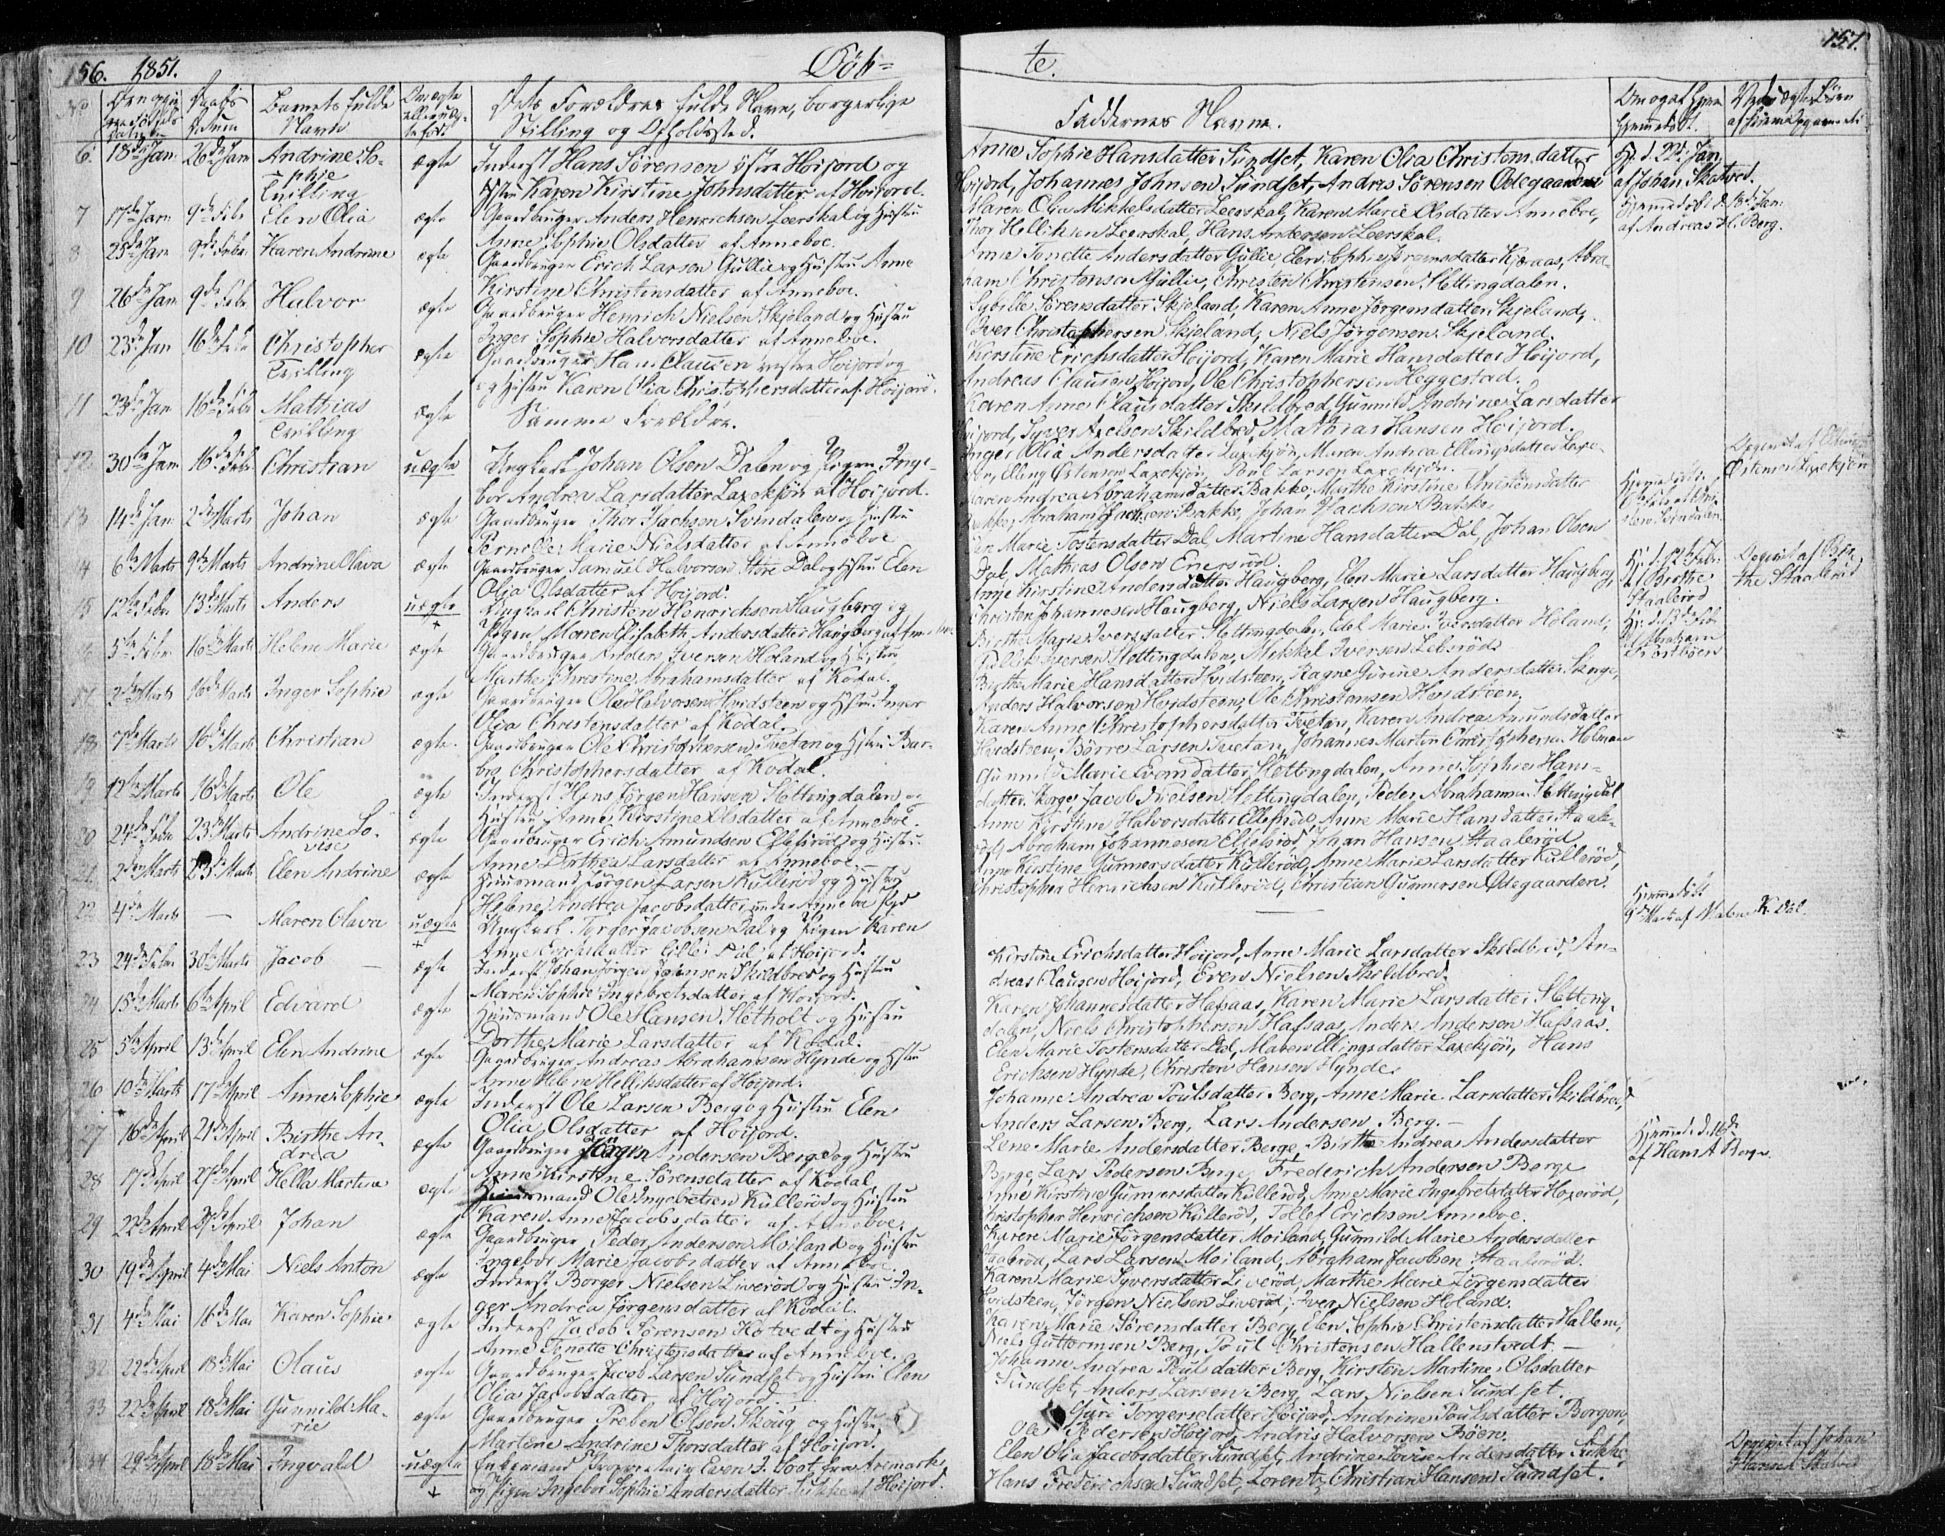 156. 1851. Døb-
te. 157.
No Barnets fulde Navn
Dets Forældres fulde Navne, borgerlige
Stilling og Opholdssted.
Faddernes Navne.
6. 18de Jan 26de Jan Andrine So- ægte Inderst Hans Sørensen østre Hoijord og
phie Hustru Karen Kirstine Johnsdatter af Hoijord.
Tvilling
Anne Sophie Hansdatter Sundset, Karen Olia Christensdatter
Hoijord, Johannes Johnsen Sundset, Andris Sørensen Ødegaarden
7 17de Jan 9de Febr Elen Olia ægte Gaardbruger Anders Henrichsen Leerskal og Hustru
Anne Sophie Olsdatter af Anneboe.
Maren Olia Mikkelsdatter Leerskal, Karen Marie Olsdatter Anneboe,
Thor Hellichsen Leerskal, Hans Andersen Leerskal.
Hjemmedøbt d. 18de Jan:
af Andreas H. Berg.
8 25de Jan 9de Febr Karen Andrine ægte Gaardbruger Erich Larsen Gullie og Hustru Anne
Kirstine Christensdatter af Anneboe.
Anne Tonette Andersdatter Gullie, Elen Sophie Jörgensdatter Kjæraas, Abra-
ham Christensen Gullie, Christen Christensen Slettingdalen.
9 26de Jan 9de Febr Halvor ægte Gaardbruger Henrich Nielsen Skjeland og Hustru
Inger Sophie Halvorsdatter af Anneboe.
Sybille Sørensdatter Skjeland, Karen Anne Jørgensdatter Skjeland,
Iver Christophersen Skjeland, Niels Jørgensen Skjeland.
10 23de Jan 16de Febr Christopher ægte Gaardbruger Hans Clausen vestre Hoijord og
Tvilling og Hustru Karen Olia Christophersdatter af Hoijord.
Kirstine Erichsdatter Hoijord, Karen Marie Hansdatter Hoijord,
Andreas Clausen Hoijord, Ole Christophersen Heggestad.
11 23de Jan 16de Febr Mathias ægte Samme Forældre.
Tvilling
Karen Anne Clausdatter Skildbred, Gunnild Andrine Larsdatter
Hoijord, Syver Axelsen Skildbred, Mathias Hansen Hoijord.
12 30te Jan 16de Febr Christian uægte Ungkarl Johan Olsen Dalen og Pigen Inge-
bor Andrea Larsdatter Laxekjøn af Hoijord.
Inger Olia Andersdatter Laxekjøn, Maren Andrea Ellingsdatter Laxe-
kjøn, Elling Østensen Laxekjøn, Poul Larsen Laxekjøn.
Opgivet af Elling
Østensen Laxekjøn
13 14de Jan 2den Marts Johan ægte Gaardbruger Thor Isachsen Svindalen og Hustru
Pernille Marie Nielsdatter af Anneboe
Maren Andrea Abrahamsdatter Bakke, Marthe Kirstine Christensdatter
Bakke, Abraham Isachsen Bakke, Johan Isachsen Bakke.
14 6te Marts 9de Marts Andrine Olava ægte Gaardbruger Samuel Halvorsen Store Dal og Hustru Elen
Olia Olsdatter af Hoijord.
Elen Marie Tostensdatter Dal, Martine Hansdatter Dal, Johan Olsen
Dal, Mathias Olsen Enersrød.
15 12te Febr 13de Marts Anders uægte Ungkarl Christen Henrichsen Haugberg og
Pigen Maren Elisabeth Andersdatter Haugberg af Anneboe
Antje Kirstine Andersdatter Haugberg, Elen Marie Larsdatter Haugberg
Christen Johannesen Haugberg, Niels Larsen Haugberg.
Opgivet af Bir-
the Staalerød
16 5te Febr 16de Marts Helene Marie ægte Gaardbruger Anders Iversen Holand og Hustru
Marthe Christine Abrahamsdatter af Kodal.
Birthe Marie Iversdatter Slettingdalen, Edel Marie Iversdatter Holand,
Iversen Slettingdalen, Mikkel Iversen Lebsrød.
17 2den Marts 16de Marts Inger Sophie ægte Gaardbruger Ole Halvorsen Hvidsteen og Hustru Inger
Olia Christensdatter af Kodal.
Birthe Marie Hansdatter Hvidsteen, Ragne Gurine Andersdatter Skorge,
Anders Halvorsen Hvidsteen, Ole Christensen Hvidsteen,
18 7de Marts 16de Marts Christian ægte Gaardbruger Ole Christophersen Tvetan og Hustru Bar-
bra Christophersdatter af Kodal.
Karen Anne Christophersdatter Tvetan, Karen Andrea Amundsdatter
Hvidsteen, Børre Larsen Tvetan, Johannes Martin Christophersen Holman
19 12te Marts 16de Marts Ole ægte Inderst Hans Jørgen Hansen Slettingdalen og
Hustru Anne Kirstine Olsdatter af Anneboe.
Gunnild Marie Evensdatter Slettingdalen, Anne Sophie Hans-
datter Skorge, Jacob Nielsen Slettingdalen, Peder Abrahamsen Slettingdal
20 24de Febr 23de Marts Andrine Lo- ægte Gaardbruger Erich Amundsen Ellefsrød og Hustru
vise Anne Dorthea Larsdatter af Anneboe.
Anne Kirstine Halvorsdatter Ellefsrød, Anne Marie Hansdatter Staale-
rød, Abraham Johannesen Ellefsrød, Johan Hansen Staalerød
21 2den Marts 23de Marts Elen Andrine ægte Huusmand Jørgen Larsen Kullerød og Hustru
Helene Andrea Jacobsdatter under Anneboe
Anne Kirstine Gunnersdatter Kullerød, Anne Marie Larsdatter Kullerød,
Christopher Henrichsen Kullerød, Christian Gunnersen Ødegaarden.
22 4de Marts — Maren Olava uægte Ungkarl Torger Jacobsen Dal og Pigen Karen
Anne Erichsdatter Lille Dal af Hoijord.
Hjemmedøbt
9de Marts af Malene K. Dal.
23 24de Febr 30te Marts Jacob ægte Inderst Johan Jørgen Johnsen Skildbred og Hustru
Maren Sophie Ingebretsdatter af Hoijord.
Kirstine Erichsdatter Hoijord, Anne Marie Larsdatter Skildbred, An-
dreas Clausen Hoijord, Even Nielsen Skildbred.
24 15de Marts 6te April Edvard ægte Huusmand Ole Hansen Sletholt og Hustru
Dorthe Marie Larsdatter af Kodal.
Karen Johannesdatter Hafsaas, Karen Marie Larsdatter Sletting-
dalen, Niels Christophersen Hafsaas, Anders Andersen Hafsaas.
25 5te April 13de April Elen Andrine ægte Gaardbruger Andreas Abrahamsen Hynde og Hustru
Anne Helene Hellichsdatter af Hoijord.
Elen Marie Tostensdatter Dal, Maren Ellingsdatter Laxekjøn, Hans
Erichsen Hynde, Christen Hansen Hynde.
26 10de Marts 17de April Anne Sophie ægte Inderst Ole Larsen Berg og Hustru Elen
Olia Olsdatter af Hoijord.
Johanne Andrea Poulsdatter Berg, Anne Marie Larsdatter Skildbred,
Anders Larsen Berg, Lars Andersen Berg.
27 16de April 21de April Birthe An- ægte Gaardbruger Jörgen Andersen Berge og Hustru
drea Anne Kirstine Sørensdatter af Kodal
Lene Marie Andersdatter Berge, Birthe Andrea Andersdatter
Berge, Lars Pedersen Berge, Frederich Andersen Berge
Hjemmed. d. 16de
af Hans A Berge.
28 17de April 27de April Hella Martine ægte Huusmand Ole Ingebretsen Kullerød og Hustru
Karen Anne Jacobsdatter af Anneboe.
Anne Kirstine Gunnersdatter Kullerød, Anne Marie Ingebretsdatter Hoxerød,
Christopher Henrichsen Kullerød, Tollef Erichsen Anneboe.
29 22de April 27de April Johan ægte Gaardbruger Peder Andersen Moiland og Hustru
Ingebor Marie Jacobsdatter af Anneboe.
Karen Marie Jørgensdatter Moiland, Gunnild Marie Andersdatter
Staalerød, Lars Larsen Moiland, Abraham Jacobsen Staalerød.
30 19de April 4de Mai Niels Anton ægte Inderst Borger Nielsen Liverød og Hustru In-
ger Andrea Jørgensdatter af Kodal.
Karen Marie Syversdatter Liverød, Marthe Marie Jørgensdatter
Hvidsteen, Jørgen Nielsen Liverød, Iver Nielsen Holand.
31 4de Mai 18de Mai Karen Sophie ægte Inderst Jacob Sørensen Hotvedt og Hustru
Anne Tonette Christensdatter af Anneboe.
Karen Marie Sørensdatter Berg, Elen Sophie Christensdatter Hallenst,
Niels Guttormsen Berg, Poul Christensen Hallenstvedt. —
32 22de April 18de Mai Olaus ægte Gaardbruger Jacob Larsen Sundset og Hustru Elen
Olia Jacobsdatter af Hoijord
Johanne Andrea Poulsdatter Berg, Kirsten Martine Olsdatter
Sundset, Anders Larsen Berg, Lars Nielsen Sundset.
33 22de April 18de Mai Gunnild Ma- ægte Gaardbruger Preben Olsen Skoug og Hustru
rie Martine Andrine Thorsdatter af Hoijord.
Guri Torgersdatter Hoijord, Andrine Poulsdatter Borgen,
Ole Pedersen Hoijord, Andris Halvorsen Bøen.
34 29de April 18de Mai Ingvald uægte Even J. Toot fra Aremark
og Pigen Ingebor Sophie Andersdatter Sukke af Hoijord.
Elen Olia Jacobsdatter Sundset, Andrine Lovise Andersdatter Sukke,
Hans Frederichsen Sundset, Lorentz Christian Hansen Sundset.
Opgivet af Johan